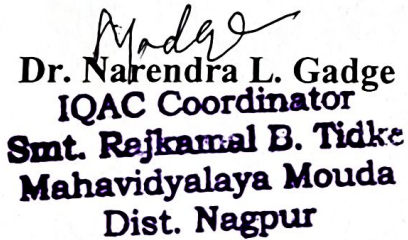 Dr. Narendra L. Gadge
IQAC Coordinator
Smt. Rajkamal B. Tidke
Mahavidyalaya Mouda
Dist. Nagpur